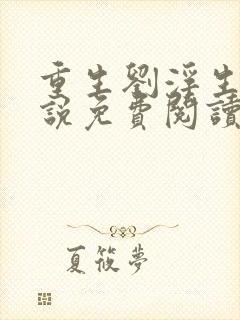 重生劉淫生
說免費閱讀
夏筱夢